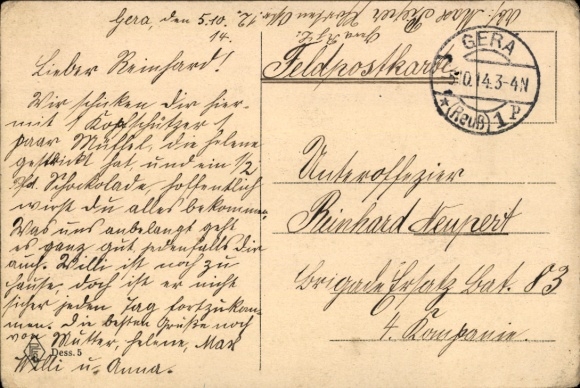 Gera, den 5.10.
14.
Lieber Reinhard!
Wir schicken dir hier-
mit 1 Kopfschützer 1
paar Müffel, die Helene
gestrickt hat und ein 1/2
Pfd. Schockolade, hoffentlich
wirst Du alles bekommen.
Was uns anbelangt geht
es ganz gut jedenfalls dir
auch. Willi ist noch zu
Hause, doch ist er nicht
sicher jeden Tag fortzukom-
men. Die besten Grüße noch
von Mutter, Helene, Max
Willi u. Anna.
Dess. 5
Abs: Max
Feldpostkarte
GERA
5.10.14.3-4N
* (Reuß) 1 P
Unteroffizier
Reinhard Neupert
Brigade Ersatz Bat. 83
4. Kompanie.